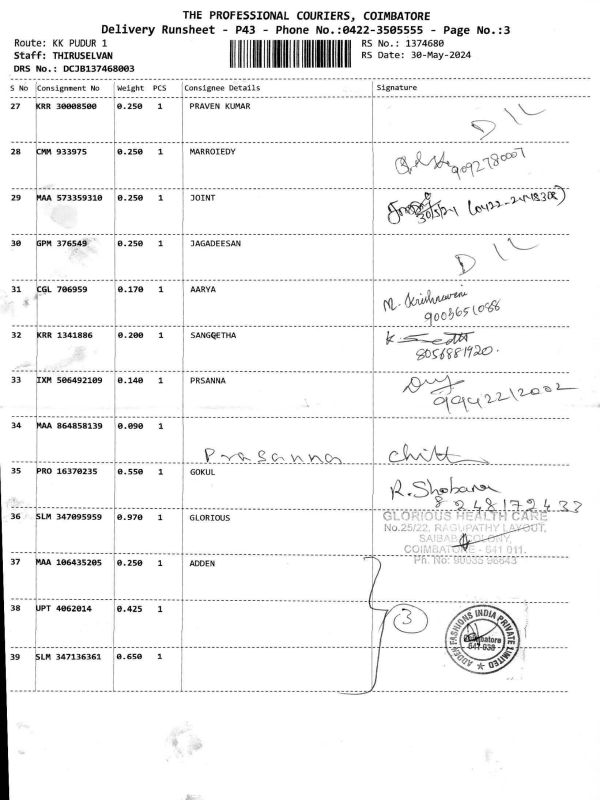 THE PROFESSIONAL COURIERS, COIMBATORE
Delivery Runsheet - P43 - Phone No.:0422-3505555 - Page No.:3
Route: KK PUDUR 1 RS No.: 1374680
Staff: THIRUSELVAN RS Date: 30-May-2024
DRS No.: DCJB137468003
S No Consignment No Weight PCS Consignee Details Signature
27 KRR 30008500 0.250 1 PRAVEN KUMAR D I L
28 CMM 933975 0.250 1 MARROIEDY
9092780007
29 MAA 573359310 0.250 1 JOINT
30/5/24
30 GPM 376549 0.250 1 JAGADEESAN D I L
31 CGL 706959 0.170 1 AARYA M. Krishnaveni
9003651088
32 KRR 1341886 0.200 1 SANGEETHA K
8056881920.
33 IXM 506492109 0.140 1 PRSANNA
9942212002
34 MAA 864858139 0.090 1
Prasanna Chitt
35 PRO 16370235 0.550 1 GOKUL R. Shobana
8248172433
36 SLM 347095959 0.970 1 GLORIOUS GLORIOUS HEALTH CARE
No.25/22, RAGUPATHY LAYOUT,
SAIBABA COLONY,
COIMBATORE - 641 011.
Ph. No: 90035 96643
37 MAA 106435205 0.250 1 ADDEN
38 UPT 4062014 0.425 1 3
ADDEN FASHIONS INDIA PRIVATE LIMITED
Coimbatore
641 038
39 SLM 347136361 0.650 1